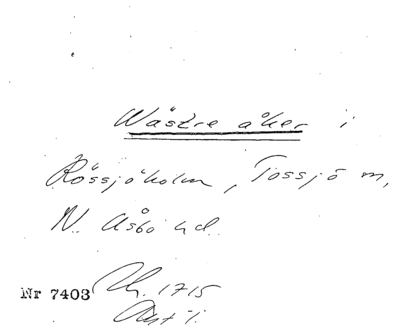 Wåstre åker i
Rössjöholm, Tossjö m,
N. Åsbo hd.
Nr 7403 1715